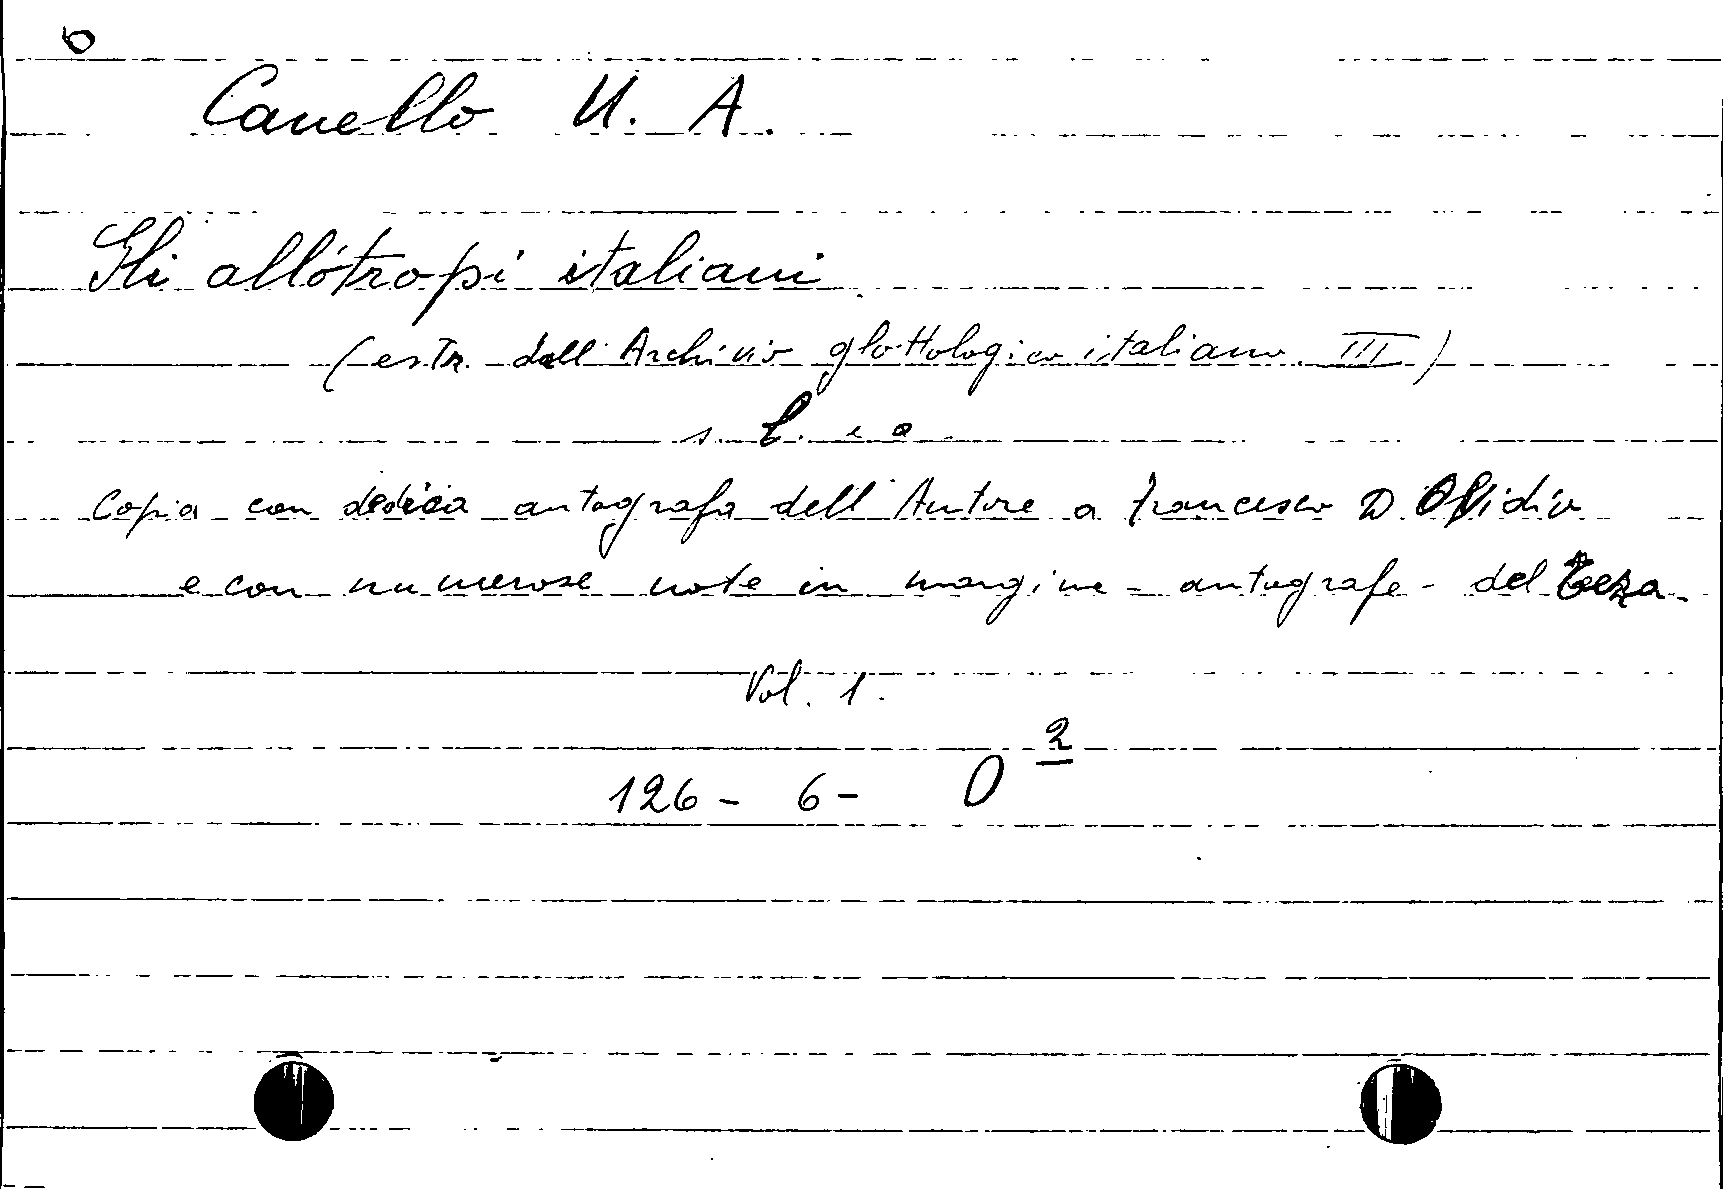 6
Canello U. A.
Gli allótropi italiani
(estr. dall'Archivio glottologico italiano III)
s. l. e a.
Copia con dedica autografa dell'Autore a Francesco D'Ovidio
e con numerose note in margine - autografe - del Teza.
Vol. 1.
126 - 6 - O 2